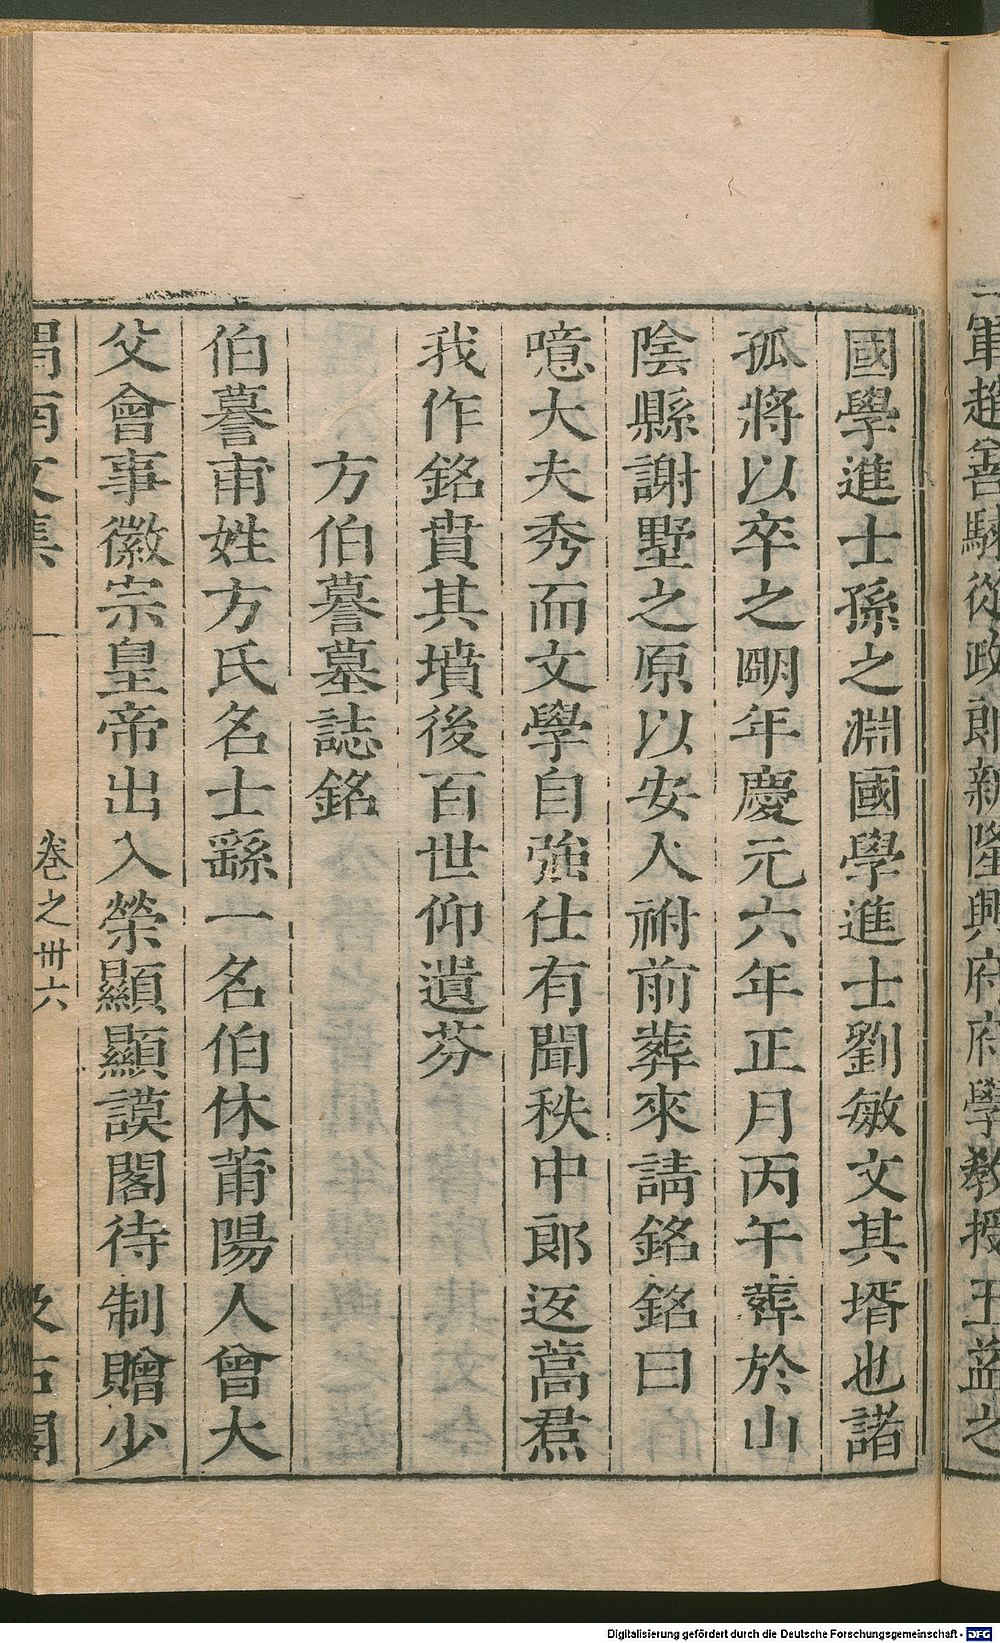 國學進士孫之淵國學進士劉敏文其壻也諸
孤將以卒之明年慶元六年正月丙午葬於山
陰縣謝墅之原以安人祔前葬來請銘銘曰
噫大夫秀而文學自強仕有聞秩中郎返蒿焄
我作銘賁其墳後百世仰遺芬
方伯謩墓誌銘
伯謩甫姓方氏名士繇一名伯休莆陽人曾大
父會事徽宗皇帝出入榮顯顯謨閣待制贈少
渭南文集 卷之卅六 汲古閣
軍趙善騋從政郎新隆興府府學教授王益之
Digitalisierung gefördert durch die Deutsche Forschungsgemeinschaft - DFG